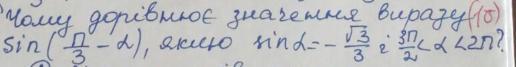 Чому дорівнює значення виразу (10)
sin(π/3 - α), якщо sinα = - √3/3 і 3π/2 < α < 2π?